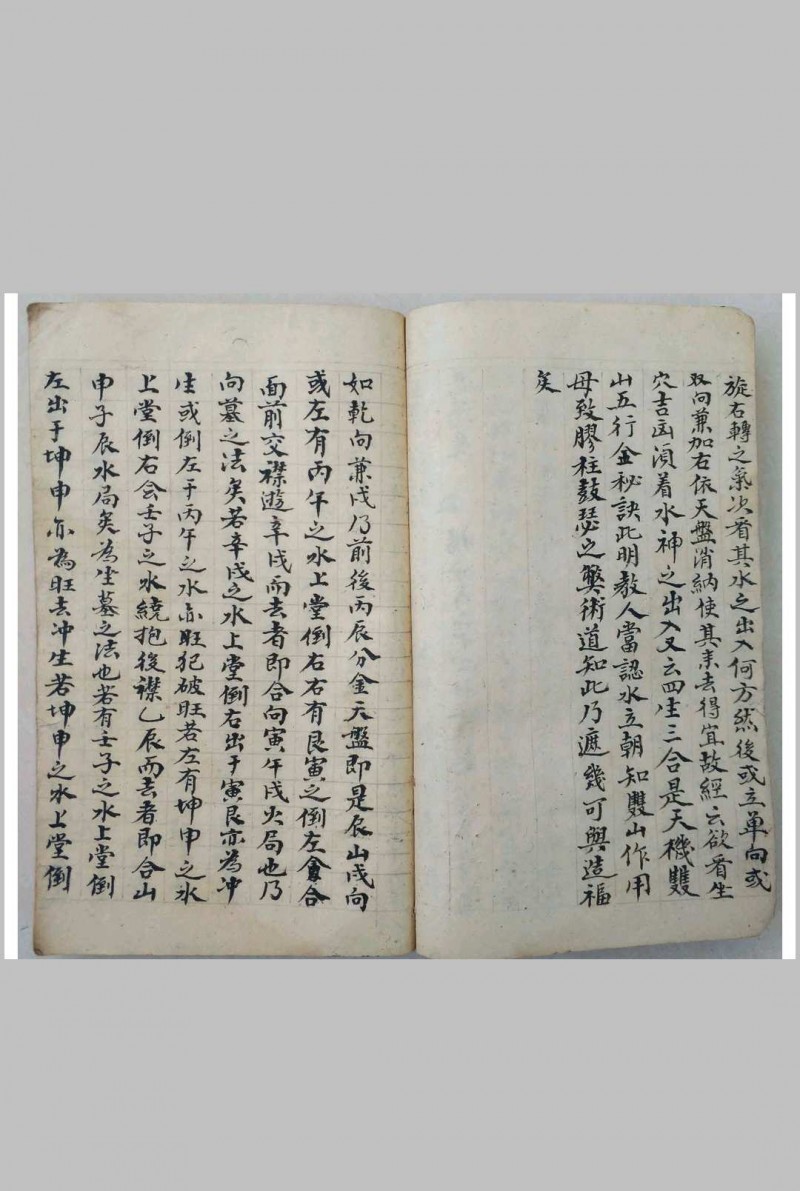 旋右轉之氣次看其水之出入何方然後或立單向或
双向兼加右依天盤消納使其来去得宜故經云欲看生
穴吉凶須着水神之出入又云四生三合是天機雙
山五行金秘訣此明教人當認水立朝知雙山作用
毋致膠柱鼓瑟之弊術道知此乃遮幾可與造福
矣
如乾向兼戌乃前後丙辰分金天盤即是辰山戌向
或左有丙午之水上堂倒右右有艮寅之倒左會合
面前交襟遊辛戌而去者即合向寅午戌火局也乃
向墓之法矣若辛戌之水上堂倒右出于寅艮亦為冲
生或倒左于丙午之水亦旺犯破旺若左有坤申之水
上堂倒右会壬子之水繞抱後襟乙辰而去者即合山
申子辰水局矣為坐墓之法也若有壬子之水上堂倒
左出于坤申亦為旺去冲生若坤申之水上堂倒